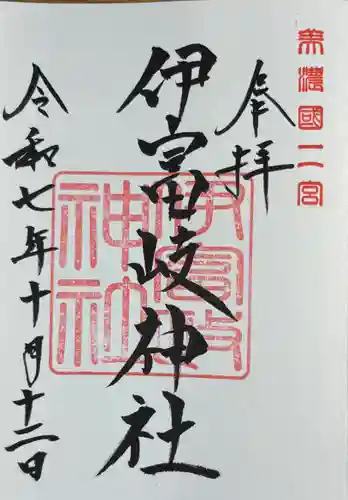 美濃國二宮
奉拝
伊富岐神社
伊富岐神社
令和七年十月十二日